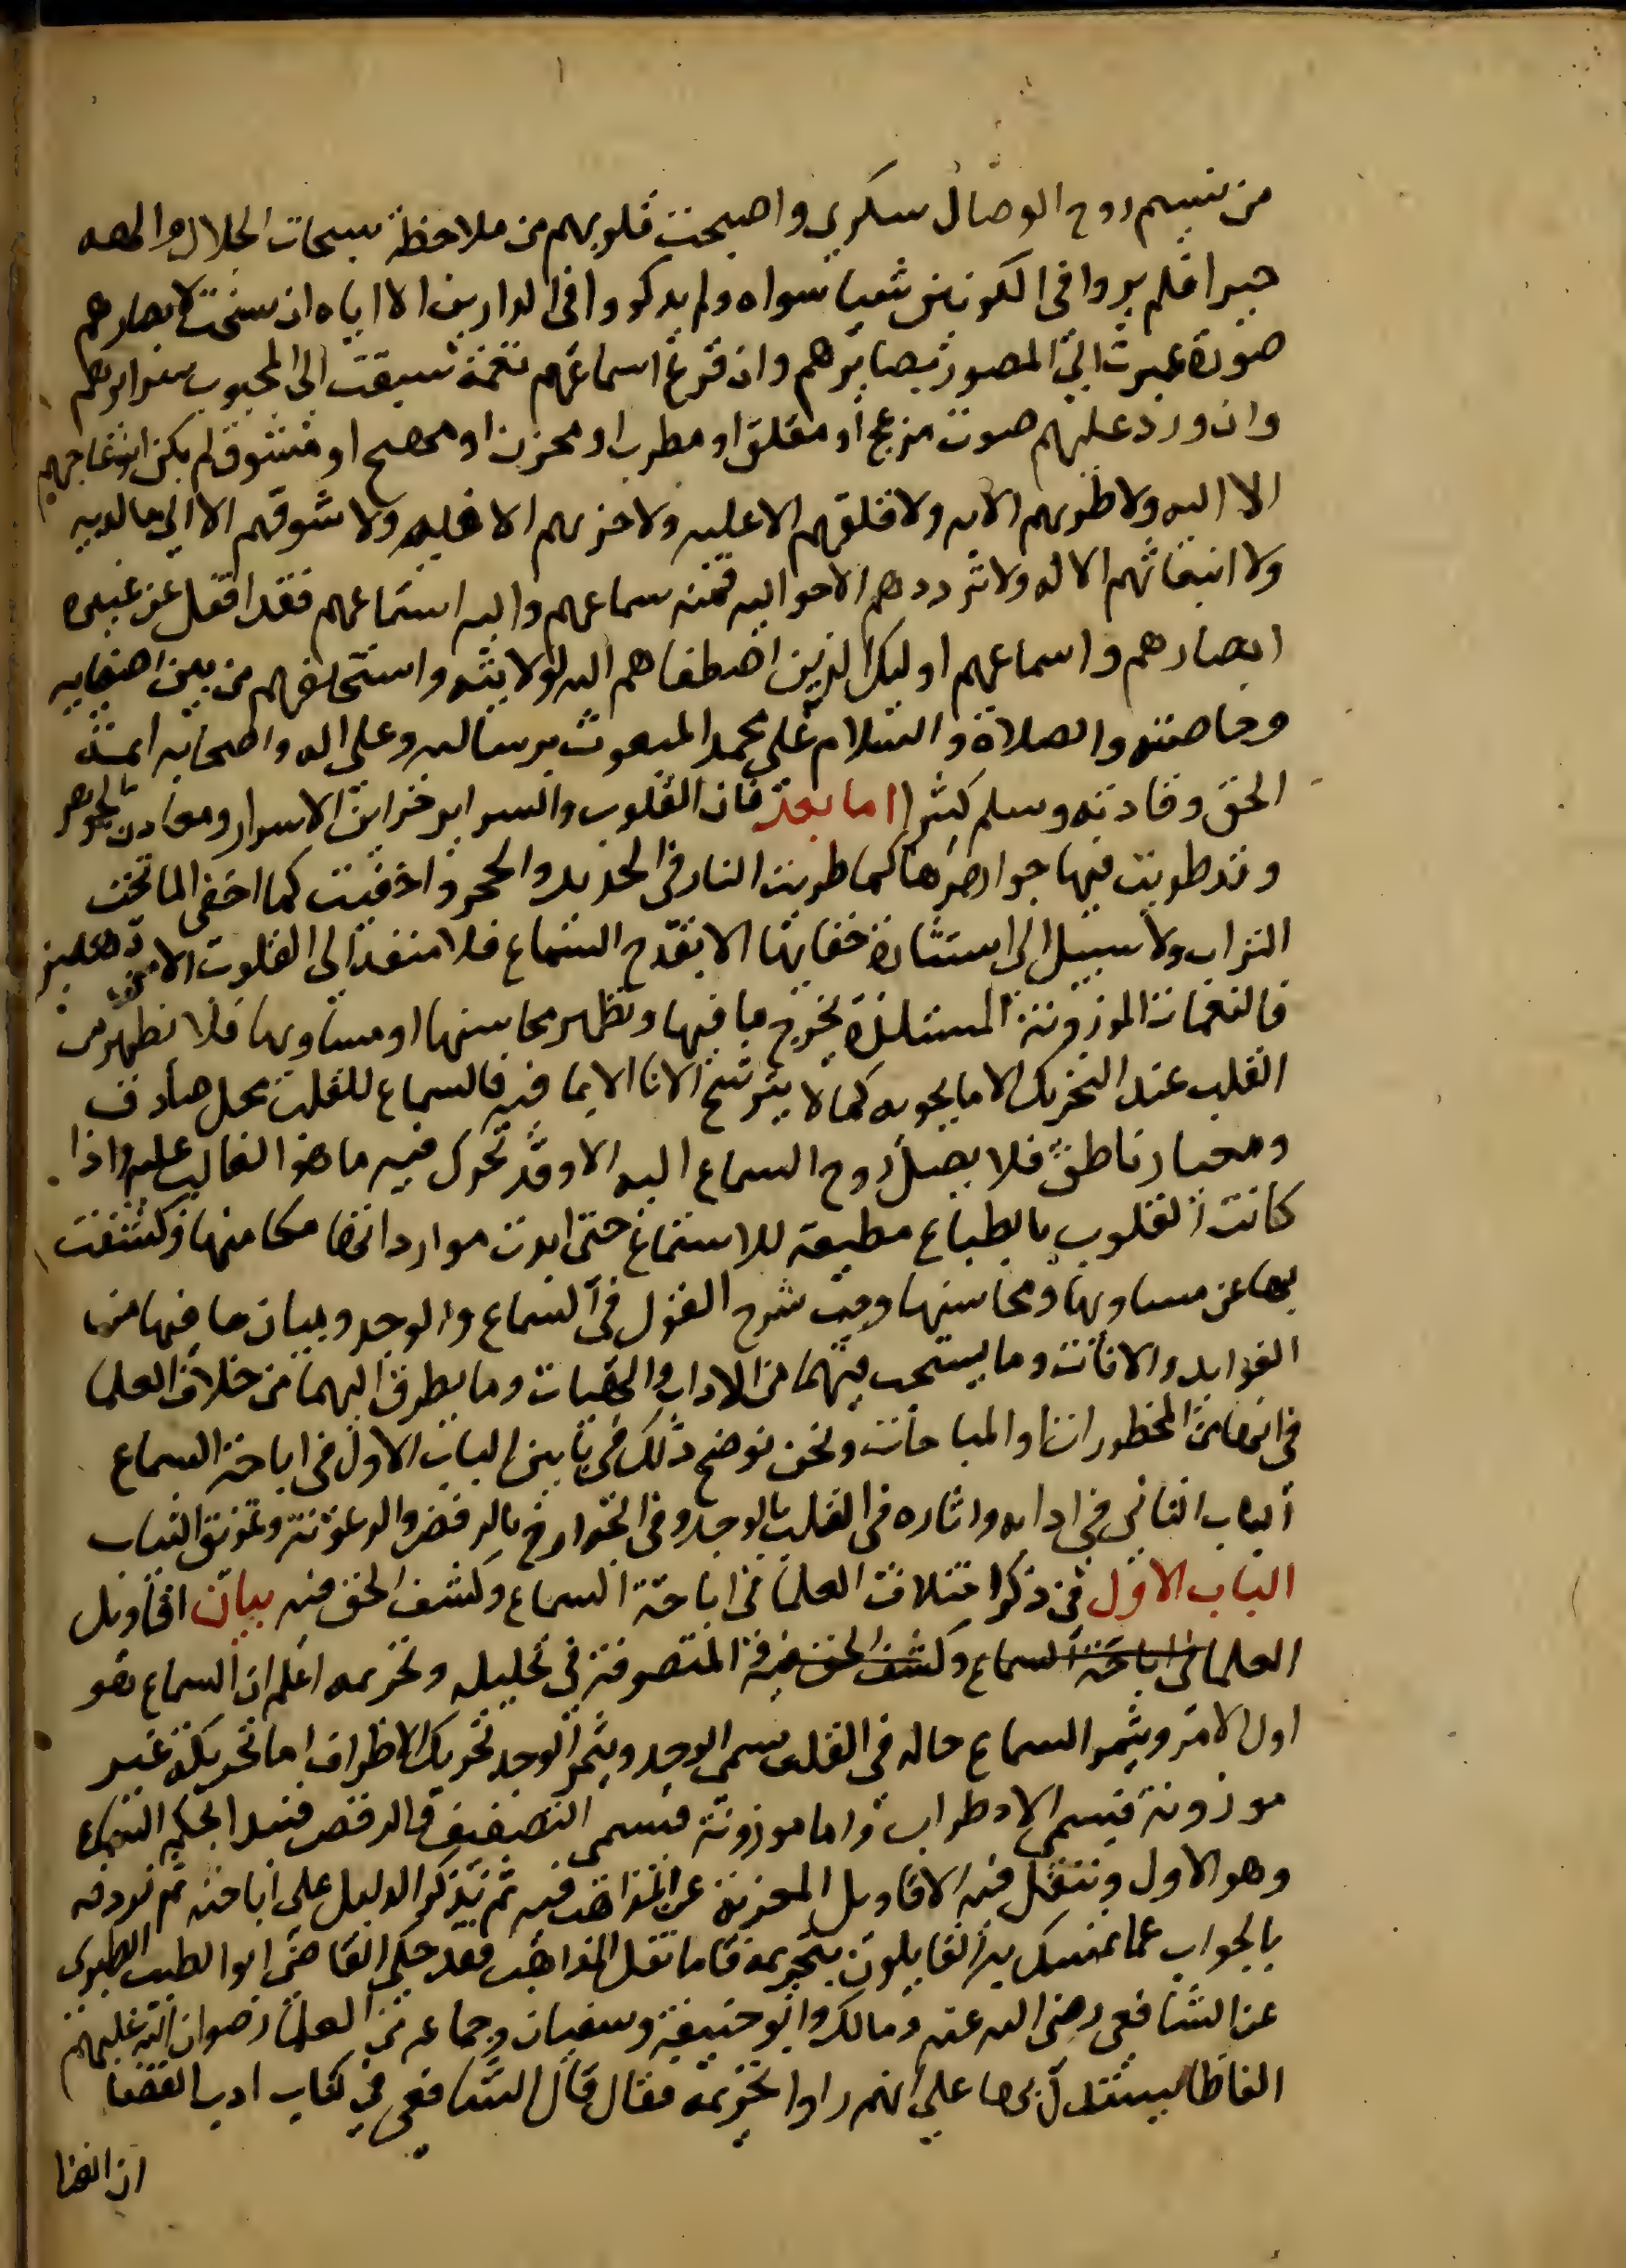 من تنسيم روح الوصال سكري واصبحت قلوبهم من ملاحظة سبحات الجلال والهه
حيرا فلم يروا في الكونين شيا سواه ولم يذكروا في الدارين الا اياه ان سنحت لابصارهم
صورة عبرت الي المصور بصايرهم وان قرع اسماعهم نغمة سبقت الى المحبوب سرايرهم
وان ورد عليهم صوت مزعج او مقلق او مطرب او محزن او مهيج او مشوق لم يكن انزعاجهم
الا اليه ولا طربهم الا به ولا قلقهم الا عليه ولا حزنهم الا فيه ولا شوقهم الا الي ما لديه
ولا انبعاثهم الا له ولا ترددهم الا حواليه فمنه سماعهم واليه استماعهم فقد اقفل عن غيره
ابصارهم واسماعهم اوليك الذين اصطفاهم الله لولايته واستخلصهم من بين اصفيايه
وخاصته والصلاة والسلام علي محمد المبعوث برسالته وعلى اله واصحابه ايمة
الحق وقادته وسلم كثيرا اما بعد فان القلوب والسراير خزاين الاسرار ومعادن الجواهر
وقد طويت فيها جواهرها كما طويت النار في الحديد والحجر واخفيت كما اخفى الما تحت
التراب ولا سبيل الى استثارة خفاياها الا بقدح السماع فلا منفذ الى القلوب الا من دهليز
فالنغمات الموزونة المستلذة تخرج ما فيها وتظهر محاسنها او مساويها فلا تظهر من
القلب عند التحريك الا ما يحويه كما لا يترشح الانا الا بما فيه فالسماع للقلب محل صادق
ومعيار ناطق فلا يصل روح السماع اليه الا وقد تحرك فيه ما هو الغالب عليه واذا
كانت القلوب بالطباع مطيعة للاستماع حتى ابدت مواردتها مكامنها وكشفت
بها عن مساويها ومحاسنها وجب شرح القول في السماع والوجد وبيان ما فيها من
الفوايد والافات وما يستحب فيهما من الاداب والهيات وما يطرق اليهما من خلاف العلما
في انها من المحظورات او المباحات ونحن نوضح ذلك في بابين الباب الاول في اباحة السماع
الباب الثاني في ادابه واثاره في القلب بالوجد وفي الجوارح بالرقص والرعونة وتمزيق الثياب
الباب الاول في ذكر اختلاف العلما في اباحة السماع وكشف الحق فيه بيان اقاويل
العلما في اباحة السماع وكشف الحق فيه المتصوفة في تحليله وتحريمه اعلم ان السماع هو
اول الامر ويثمر السماع حاله في القلب تسمى الوجد ويثمر الوجد تحريك الاطراف اما تحريكة غير
موزونة فيسمي الاضطراب واما موزونة فيسمى التصفيق والرقص فنبدا بحكم السماع
وهو الاول وننقل فيه الاقاويل المعربة عن المذاهب فيه ثم نذكر الدليل على اباحته ثم نردفه
بالجواب عما تمسك به القايلون بتحريمه فاما نقل المذاهب فقد حكى القاضي ابو الطيب الطبري
عن الشافعي رضى الله عنه ومالك وابو حنيفة وسفيان وجماعة من العلما رضوان الله عليهم
الفاظا يستدل بها علي انهم راوا تحريمه فقال قال الشافعي في كتاب ادب القضا
ان الغنا